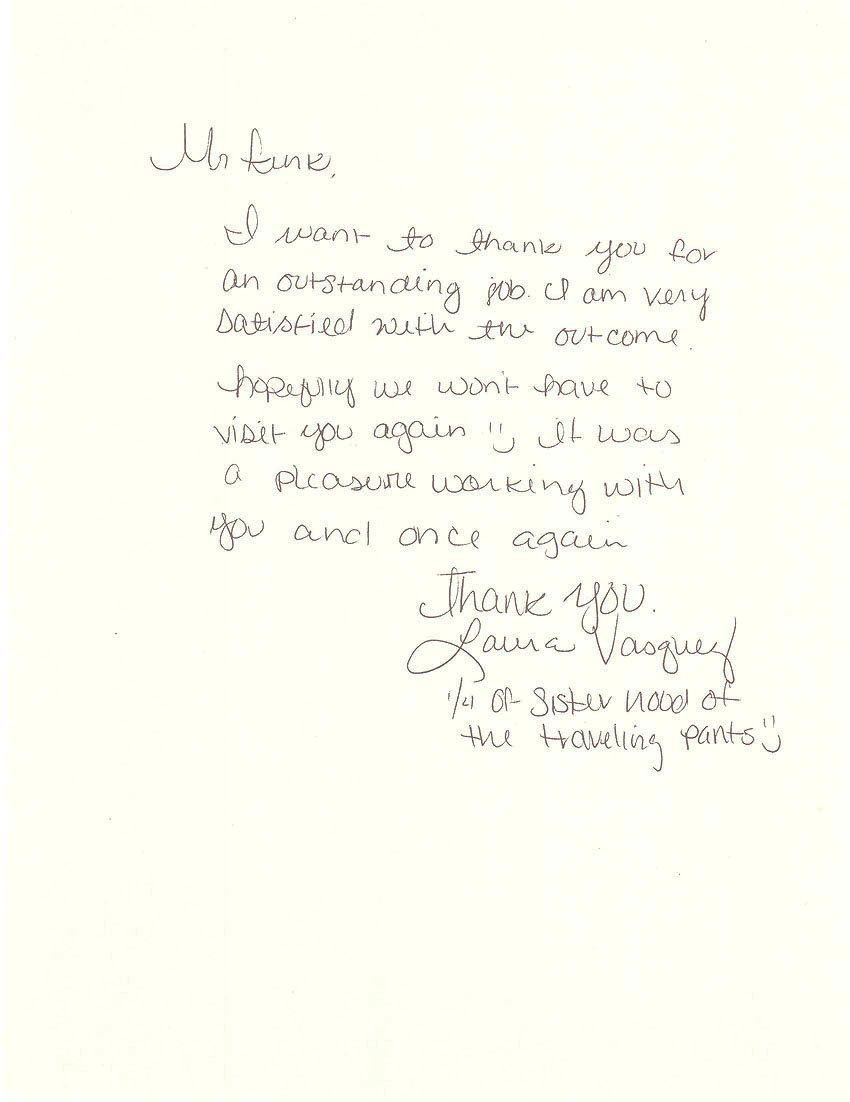 Mr Funk,
I want to thank you for
an outstanding job. I am very
satisfied with the outcome.
hopefully we won't have to
visit you again :) It was
a pleasure working with
you and once again
Thank you.
Laura Vasquez
1/4 of Sister hood of
the traveling pants :)